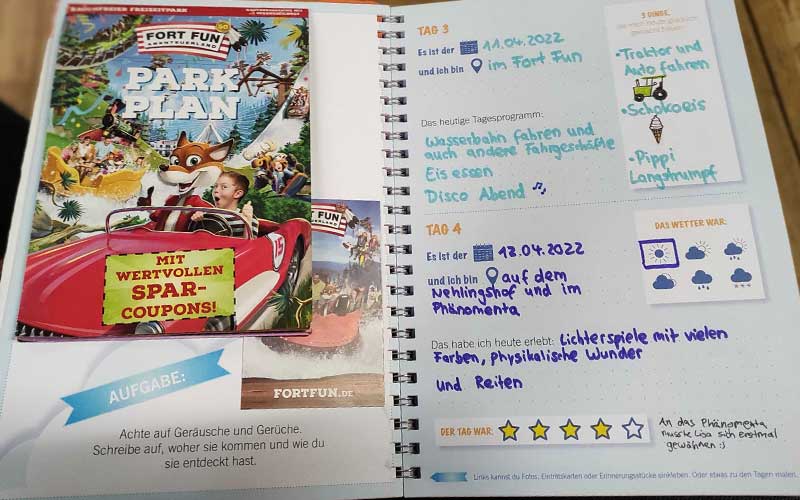 FORT FUN
ABENTEUERLAND
PARK
PLAN
MIT
WERTVOLLEN
SPAR-
COUPONS!
FORT FUN
ABENTEUERLAND
FORTFUN.DE
AUFGABE:
Achte auf Geräusche und Gerüche.
Schreibe auf, woher sie kommen und wie du
sie entdeckt hast.
TAG 3
Es ist der 11.04.2022
und ich bin im Fort Fun
Das heutige Tagesprogramm:
Wasserbahn fahren und
auch andere Fahrgeschäfte
Eis essen
Disco Abend
3 DINGE,
die mich heute glücklich
gemacht haben:
• Traktor und
Auto fahren
• Schokoeis
• Pippi
Langstrumpf
TAG 4
Es ist der 12.04.2022
und ich bin auf dem
Nehlingshof und im
Phänomenta
DAS WETTER WAR:
Das habe ich heute erlebt: Lichterspiele mit vielen
Farben, physikalische Wunder
und Reiten
DER TAG WAR:
An das Phänomenta
musste Lisa sich erstmal
gewöhnen :)
Links kannst du Fotos, Eintrittskarten oder Erinnerungsstücke einkleben. Oder etwas zu den Tagen malen.